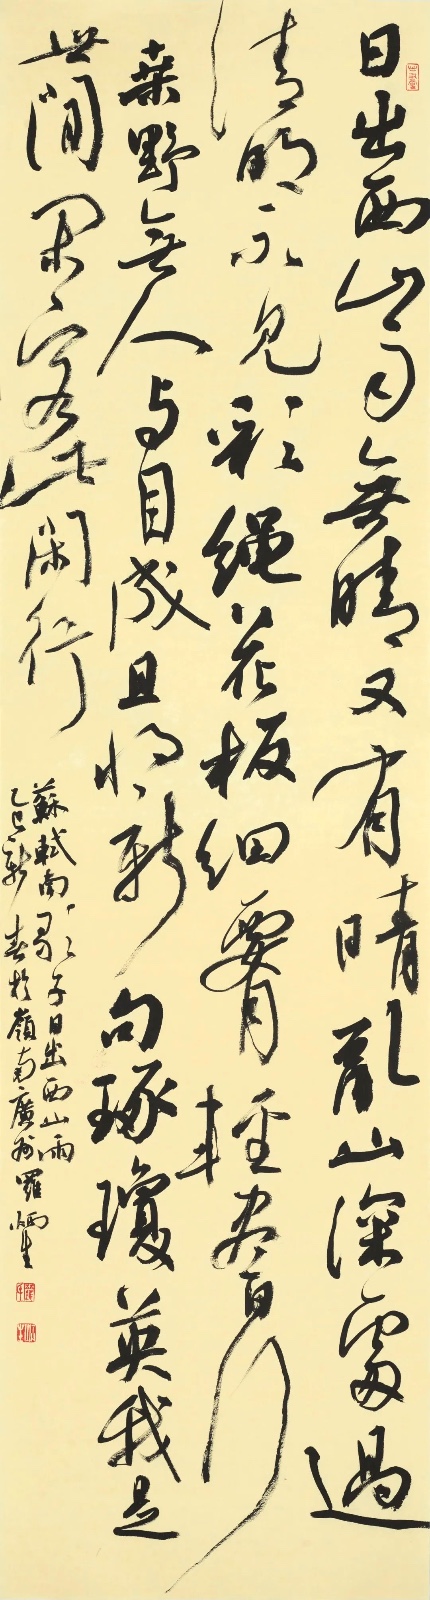 日出西山雨無晴又有晴亂山深處過
清明不見彩繩花板細腰輕盡日行
桑野無人与目成且將新句琢瓊英我是
世間閑客此閑行
蘇軾南歌子日出西山雨
乙巳新春於嶺南廣州羅炳生